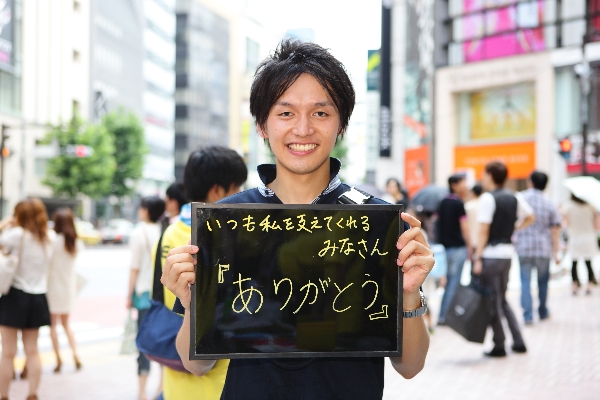 いつも私を支えてくれる
みなさん
『ありがとう』